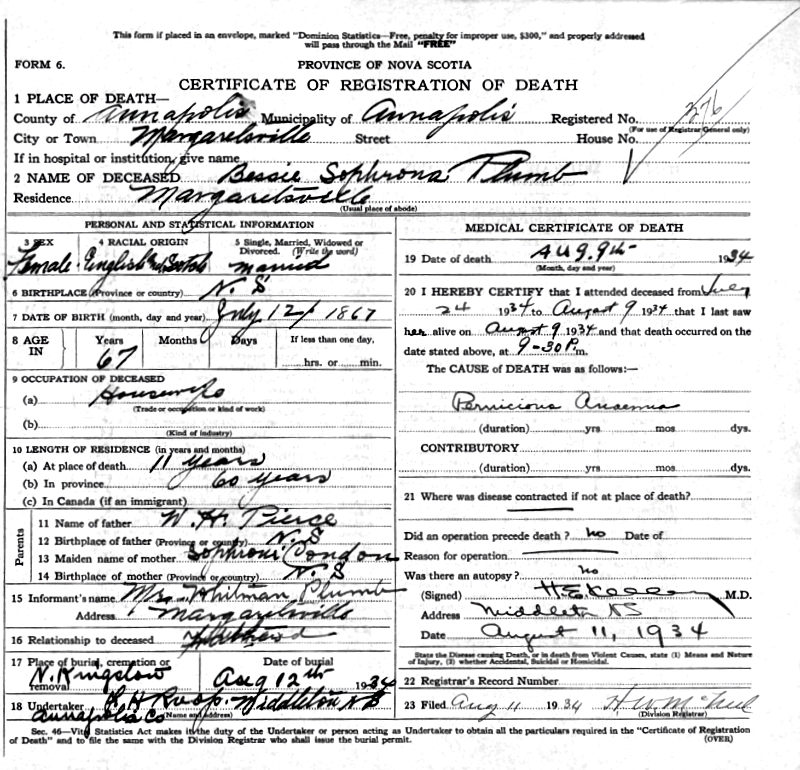 This form if placed in an envelope, marked "Dominion Statistics—Free, penalty for improper use, $300," and properly addressed
will pass through the Mail "FREE"
FORM 6.
PROVINCE OF NOVA SCOTIA
CERTIFICATE OF REGISTRATION OF DEATH
1 PLACE OF DEATH—
County of Annapolis Municipality of Annapolis Registered No. 276
(For use of Registrar General only)
City or Town Margaretsville Street House No.
If in hospital or institution, give name
2 NAME OF DECEASED Bessie Sophrona Plumb
Residence Margaretsville
(Usual place of abode)
PERSONAL AND STATISTICAL INFORMATION
3 SEX 4 RACIAL ORIGIN 5 Single, Married, Widowed or
Divorced. (Write the word)
Female English and Scotch married
6 BIRTHPLACE (Province or country) N. S
7 DATE OF BIRTH (month, day and year) July 12 / 1867
8 AGE IN Years Months Days If less than one day,
67 hrs. or min.
9 OCCUPATION OF DECEASED
(a) Housewife
(Trade or occupation or kind of work)
(b)
(Kind of industry)
10 LENGTH OF RESIDENCE (in years and months)
(a) At place of death 11 years
(b) In province 60 years
(c) In Canada (if an immigrant)
Parents
11 Name of father W. H. Pierce
12 Birthplace of father (Province or country) N. S
13 Maiden name of mother Sophroni Condon
14 Birthplace of mother (Province or country) N. S
15 Informant's name Mr. Whitman Plumb
Address Margaretsville
16 Relationship to deceased Husband
17 Place of burial, cremation or
removal Date of burial
N. Kingston Aug 12th 1934
18 Undertaker Middleton N S
(Name and address)
Annapolis Co
MEDICAL CERTIFICATE OF DEATH
19 Date of death AUG. 9th 1934
(Month, day and year)
20 I HEREBY CERTIFY that I attended deceased from July
24 1934 to August 9 1934 that I last saw
her alive on August 9 1934 and that death occurred on the
date stated above, at 9-30 P.m.
The CAUSE of DEATH was as follows:—
Pernicious Anaemia
(duration) yrs mos dys.
CONTRIBUTORY
(duration) yrs mos dys.
21 Where was disease contracted if not at place of death?
Did an operation precede death? no Date of
Reason for operation
Was there an autopsy? no
(Signed) M.D.
Address Middleton NS
Date August 11, 1934
State the Disease causing Death, or in death from Violent Causes, state (1) Means and Nature
of Injury, (2) whether Accidental, Suicidal or Homicidal.
22 Registrar's Record Number
23 Filed Aug 11 1934
(Division Registrar)
Sec. 46—Vital Statistics Act makes it the duty of the Undertaker or person acting as Undertaker to obtain all the particulars required in the "Certificate of Registration
of Death" and to file the same with the Division Registrar who shall issue the burial permit. (OVER)